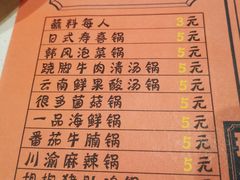 蘸料每人 3元
日式寿喜锅 5元
韩风泡菜锅 5元
跷脚牛肉清汤锅 5元
云南鲜果酸汤锅 5元
很多菌菇锅 5元
一品海鲜锅 5元
番茄牛腩锅 5元
川渝麻辣锅 5元
胡椒猪肚鸡锅 5元